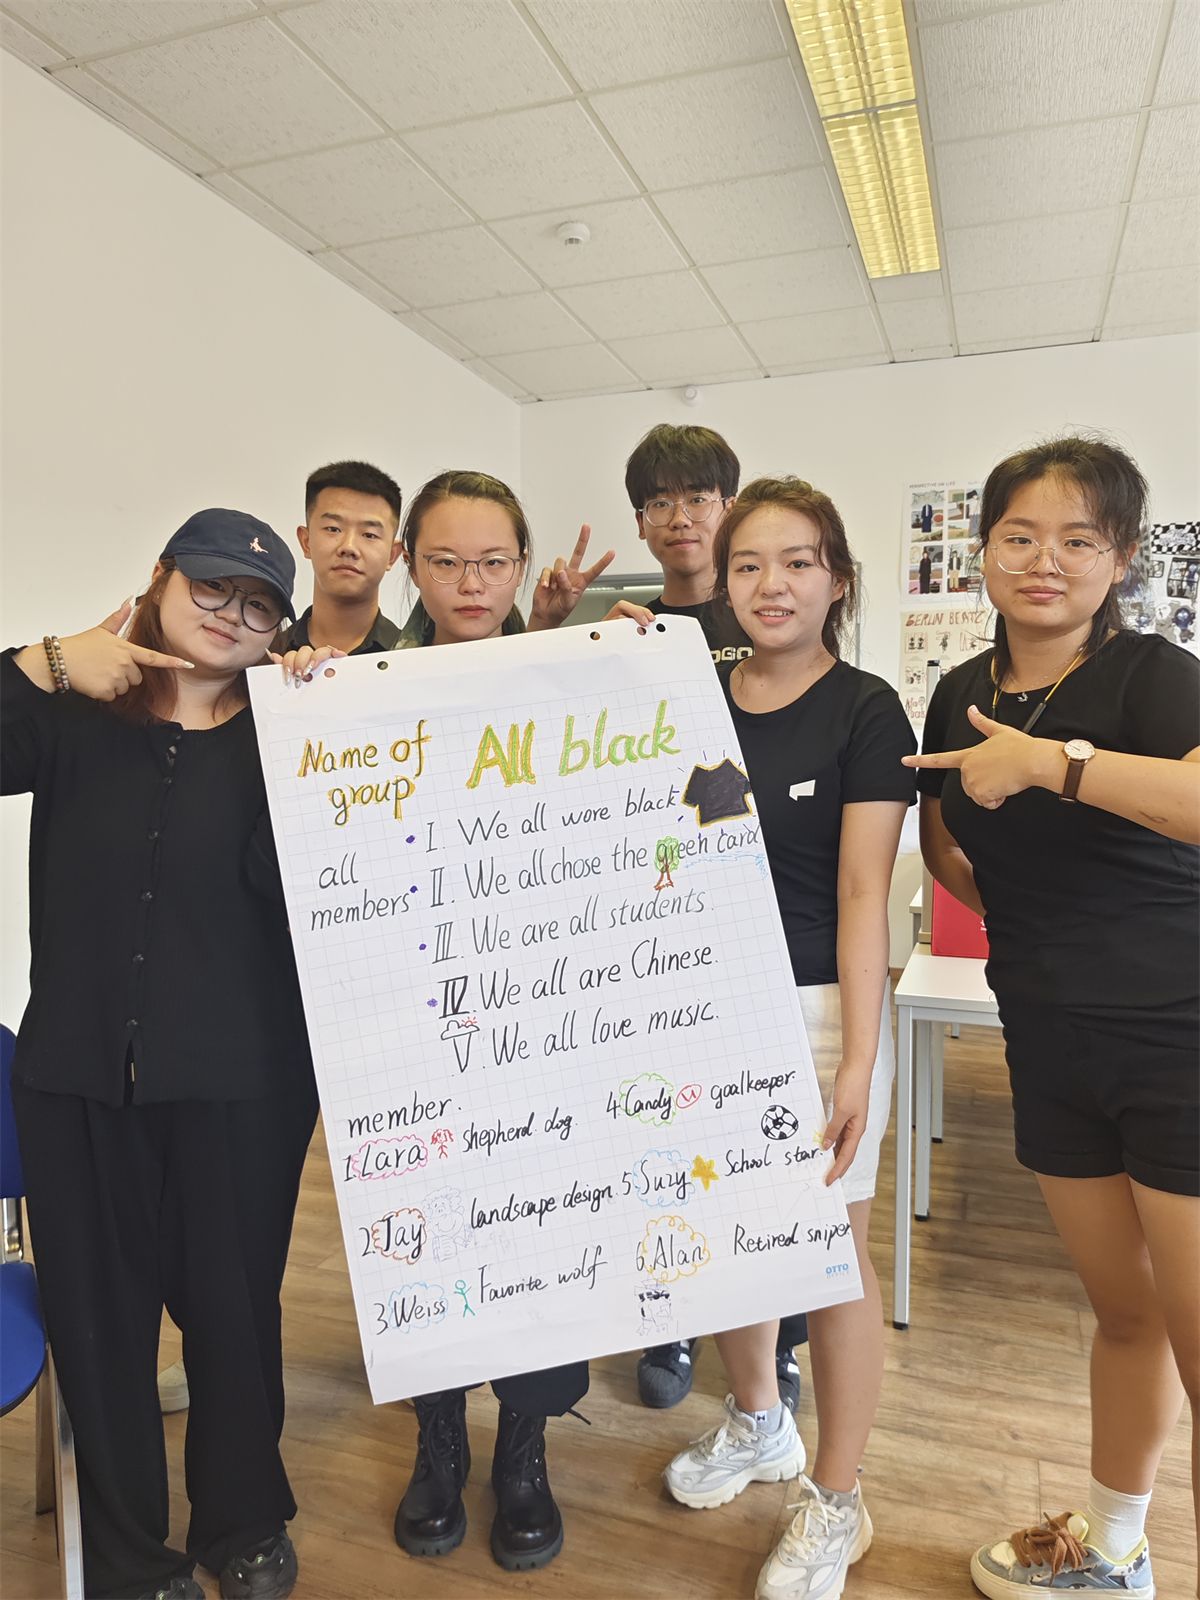 Name of group
All black
all members
I. We all wore black
II. We all chose the green card
III. We are all students.
IV. We all are Chinese.
V. We all love music.
member.
1. Lara shepherd dog.
2. Jay landscape design.
3 Weiss Favorite wolf
4 Candy goalkeeper.
5. Suzy School star.
6. Alan Retired sniper
OTTO
OFFICE
PERSPECTIVE ON LIFE
BERLIN